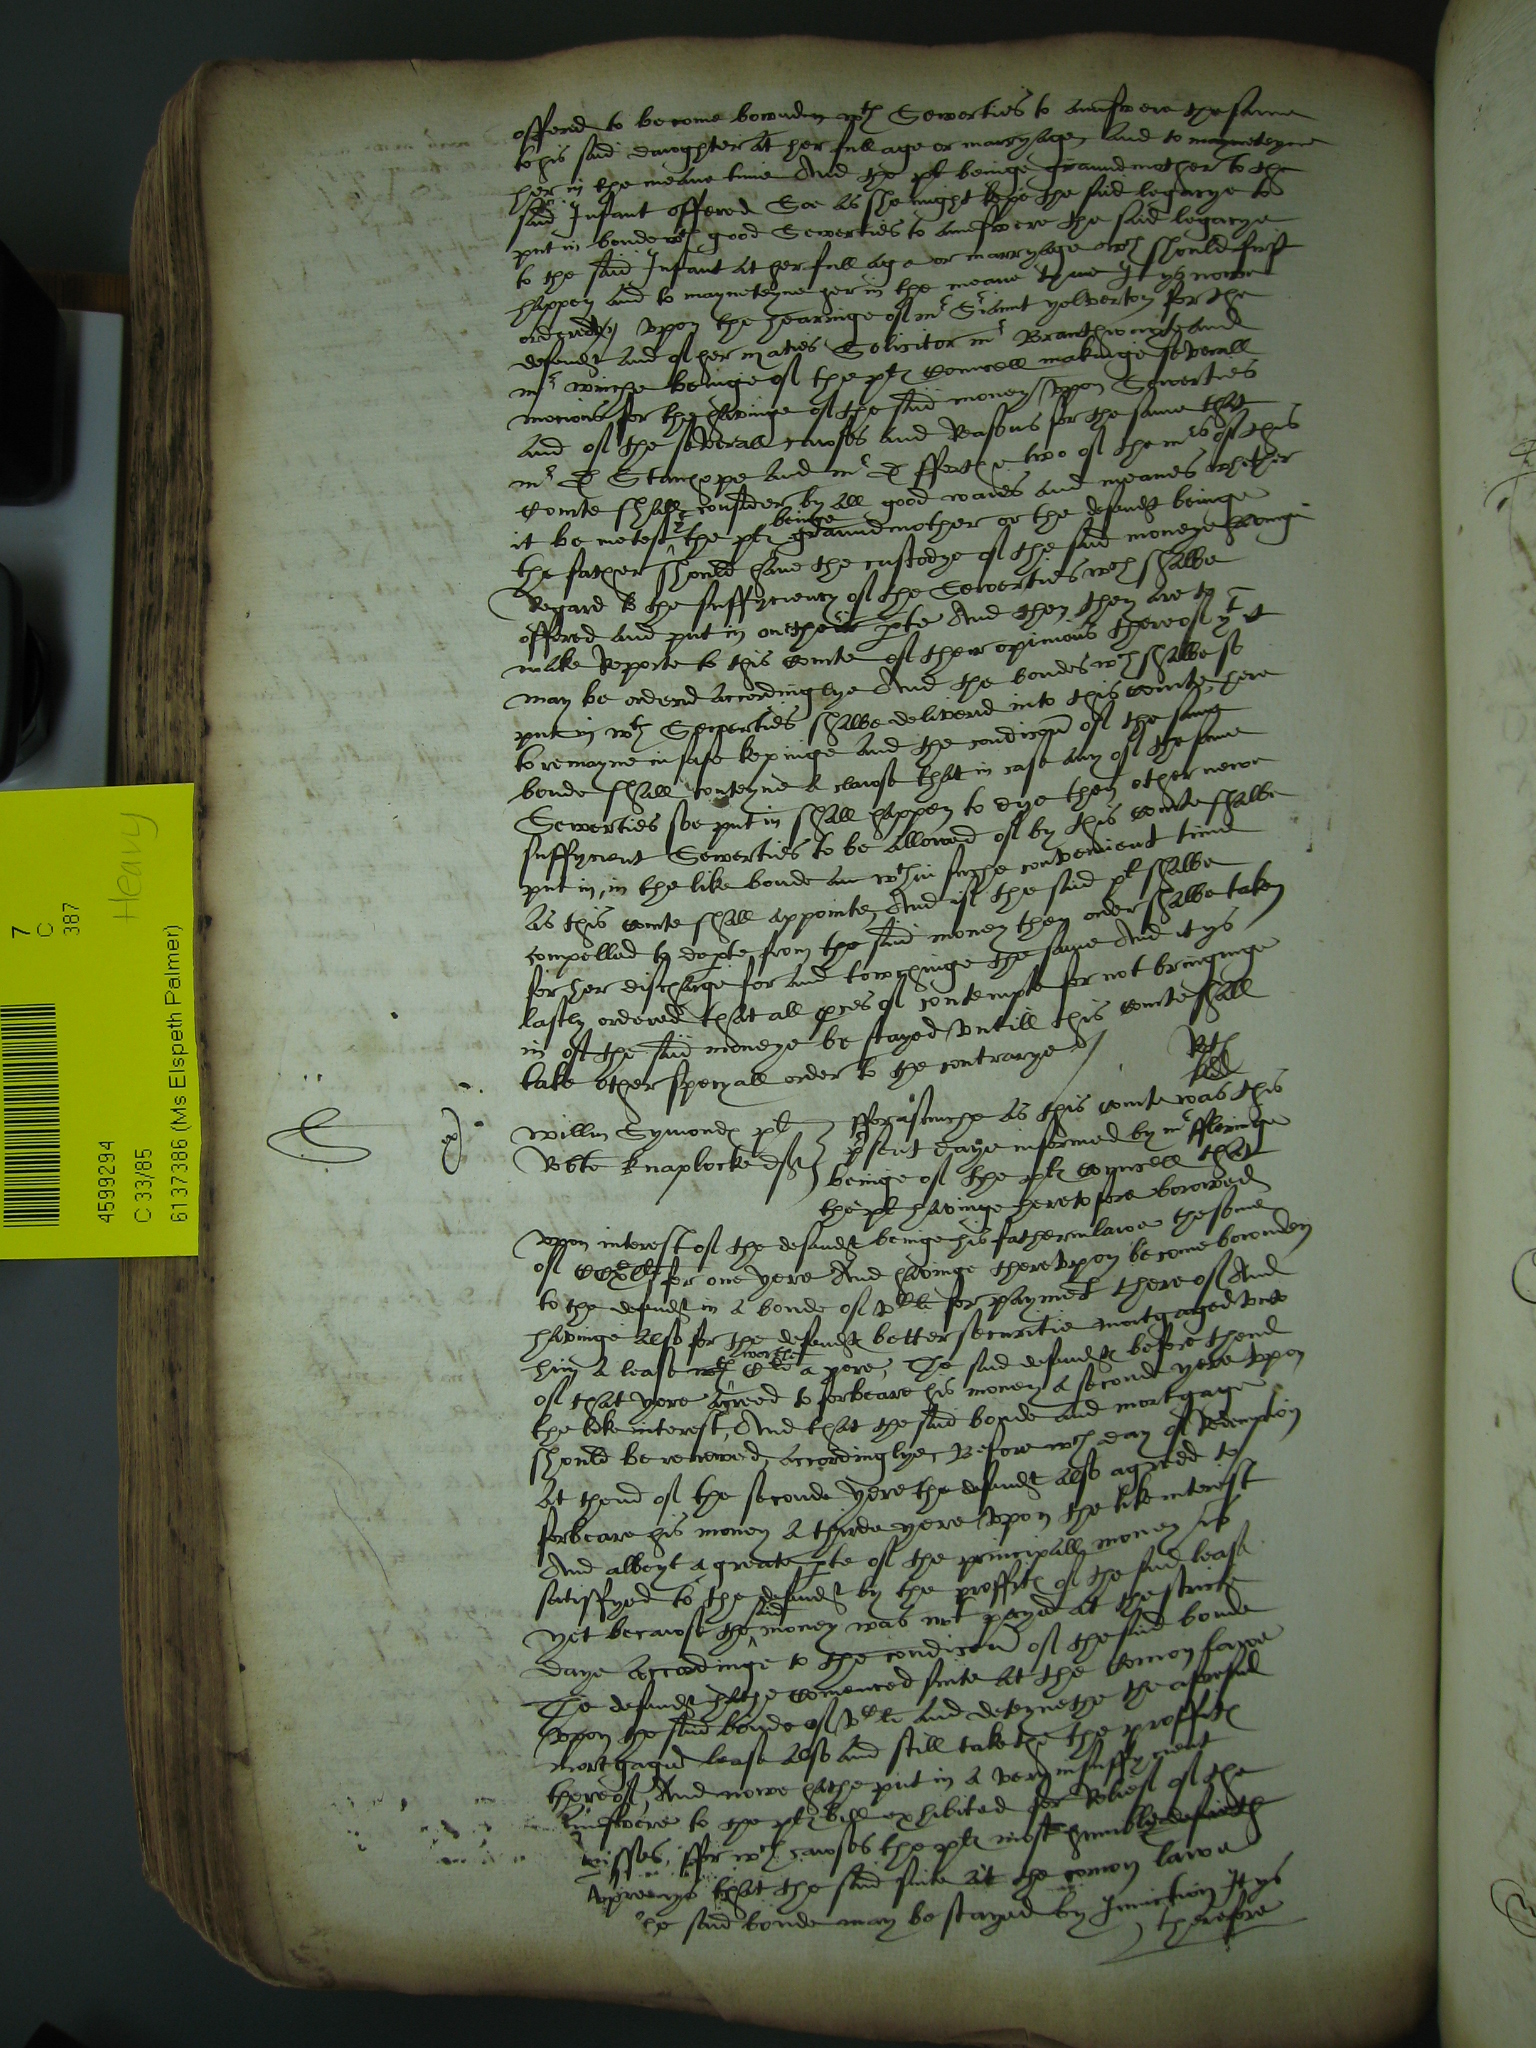 offered to become bounden wth Sewerties to aunswere the same
to his said dawghter at her full age or marryage and to maynteyne
her in the meane time And the pl beinge graundmother to the
said Infant offered Soe as she might kepe the said legacye to
put in bonde wth good Sewerties to aunswere the said legacye
to the said Infant at her full age or marryage wch should first
happen and to maynteyne her in the meane tyme It ys nowe
ordered vpon the hearinge of mr Sriant yelverton for the
defendt and of her maties Solicitor mr Branthwayte and
mr winche beinge of the pltes councell makinge severall
mocions for the havinge of the said money vpon Sewerties
and of the severall causes and Reasons for the same that
mr D Stanhope and mr D fforthe two of the mrs of this
Courte shall consider by all good waies and meanes whether
it be metest the pl beinge graundmother or the defendt beinge
the father should have the custodye of the said moneye havinge
Regard to the suffyciency of the Sewerties wch shalbe
offered and put in on either pte And then they are to
make Reporte to this Courte of their opinions thereof yt it
may be ordered accordinglye And the bondes wch shalbe so
put in wth Sewerties shalbe delivered into this Courte here
to remayne in safe kepinge and the condicon of the same
bonde shall conteyne a clause that in case any of the same
Sewerties soe put in shall happen to dye then other newe
suffycient Sewerties to be allowed of by this Courte shalbe
put in, in the like bonde wthin suche convenient time
as this Courte shall appointe, And if the said pl shalbe
compelled to depte from the said money then order shalbe taken
for her discharge for and towchinge the same And it ys
lastly ordered that all pces of contempte for not bringinge
in of the said moneye be stayed vntill this Courte shall
take other specyall order to the contrarye
willm Symondes pl fforasmuche as this Courte was this
Robte Knaplocke deft psent daye informed by mr
beinge of the pltes councell that
the pl havinge heretofore borowed
vpon interest of the defendt beinge his father in lawe the some
of for one yere And havinge therevpon become bounden
to the defendt in a bonde of for paymet thereof And
havinge also for the defendtes better securitie mortgaged vnto
him a lease worthe a yere, The said defendt before thend
of that yere agreed to forbeare his money a second yere vpon
the like interest, And that the said bonde and mortgage
should be renewed, accordinglye, Before wch day of Redemption
at thend of the seconde yere the defendt also agreed to
forbeare his money a thirde yere vpon the like interest
And albeyt a greate pte of the principall money is
satisfyed to the defendt by the proffites of the said lease
yet because the said money was not payed at the stricte
daye accordinge to the condicon of the said bonde
The defendt hathe comenced suite at the Comon lawe
vpon the said bonde of and deteynethe the aforesaid
mortgaged lease also and still takethe the proffites
thereof, And nowe hathe put in a very insuffycient
aunswere to the pltes bill exhibited for Reliefe of the
misses, ffor wch cawses the pl most humbly desireth
that the said suite at the comon lawe
vpon the said bonde may be stayed by Iniuction It ys
therefore
7
C
387
Heavy
4599294
C 33/85
6137386 (Ms Elspeth Palmer)